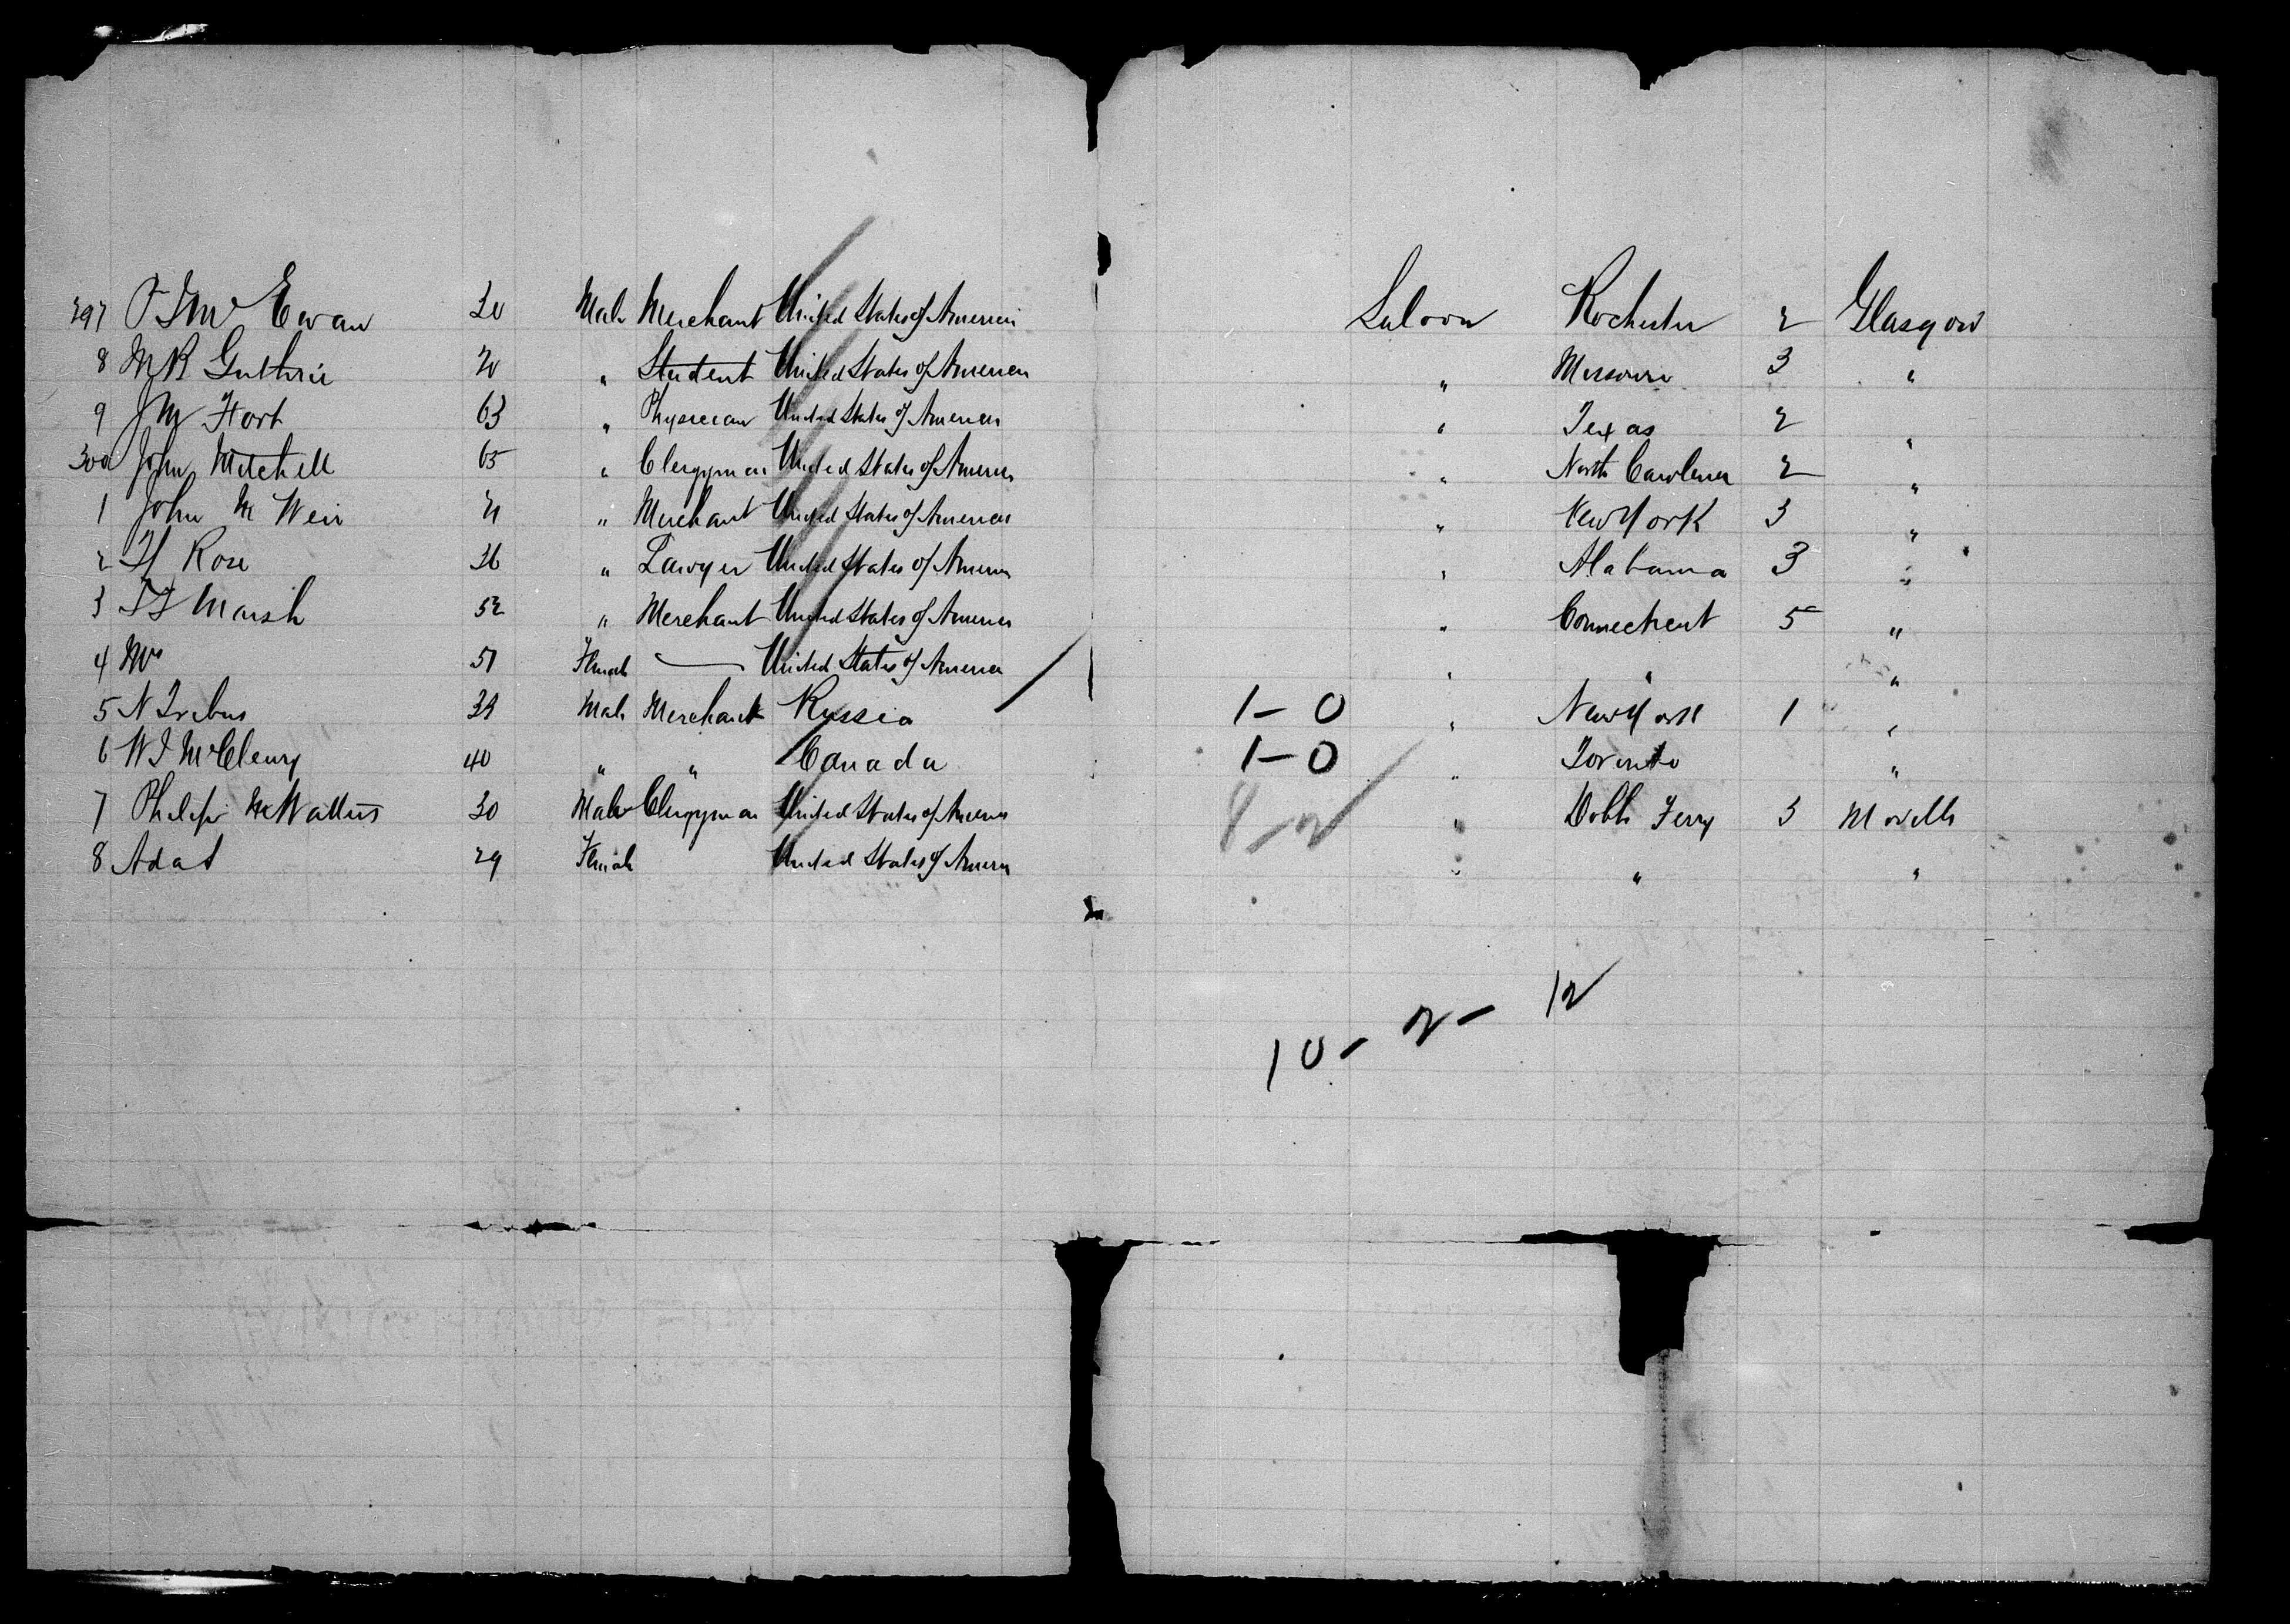 297 Ewan 30 Male Merchant United States of America Saloon Rochester 2 Glasgow
8 M R Guthrie 20 " Student United States of America " Missouri 3 "
9 J M Fort 63 " Physician United States of America " Texas 2 "
300 John Mitchell 65 " Clergyman United States of America " North Carolina 2 "
1 John M Weir 21 " Merchant United States of America " New York 3 "
2 H Rose 36 " Lawyer United States of America " Alabama 3 "
3 Marsh 52 " Merchant United States of America " Connecticut 5 "
4 Mrs 51 Female — United States of America " " "
5 N Trebus 39 Male Merchant Russia 1-0 " New York 1 "
6 W J McCleury 40 " " Canada 1-0 " Toronto "
7 Philip 30 Male Clergyman United States of America 8-2 " Dobbs Ferry 3 Moville
8 Ada 29 Female United States of America " " "
10- 2- 12